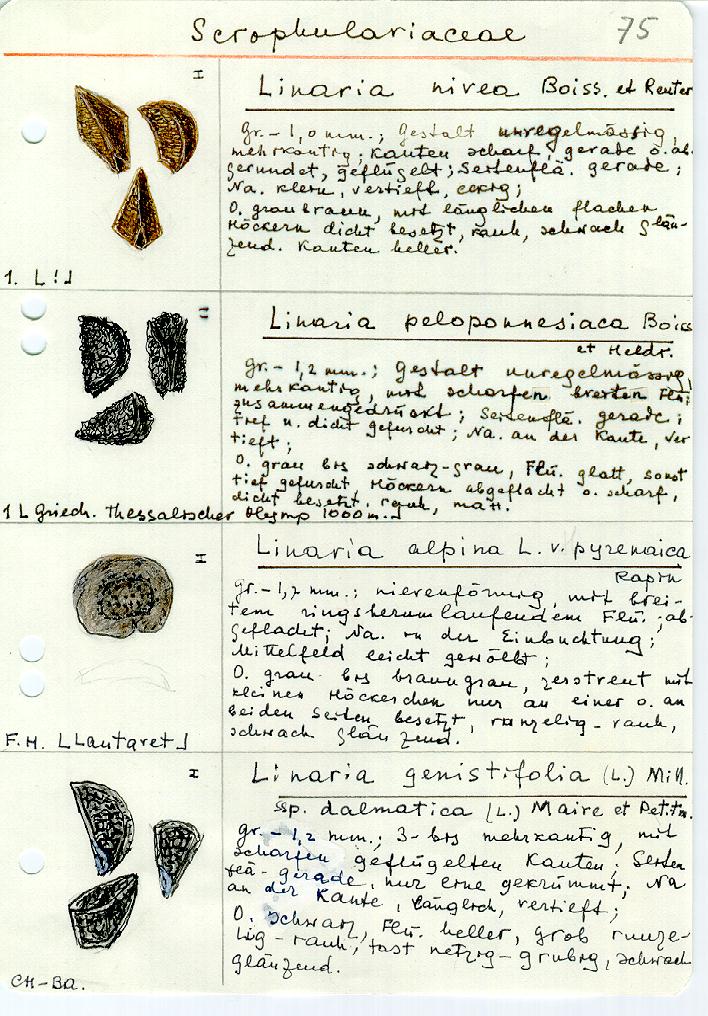 Scrophulariaceae 75
I
Linaria nivea Boiss. et Reuter
gr.- 1,0 mm.; Gestalt unregelmässig,
mehrkantig; Kanten scharf, gerade o. ab-
gerundet, geflügelt; Seitenflä. gerade;
Na. klein, vertieft, eckig;
O. graubraun, mit länglichen flachen
Höckern dicht besetzt, rauh, schwach glän-
zend. Kanten heller.
1. L!
Linaria peloponnesiaca Boiss
et Heldr.
gr.- 1,2 mm.; Gestalt unregelmässig,
mehrkantig, mit scharfen breiten Flü.
zusammengedrückt; Seitenflä. gerade;
tief u. dicht gefurcht; Na. an der Kante, ver
tieft;
O. grau bis schwarz-grau, Flü. glatt, sonst
tief gefurcht, Höckern abgeflacht o. scharf,
dicht besetzt, rauh, matt.
1 L Griech. Thessalischer Olymp 1000 m.
I
Linaria alpina L. v. pyrenaica
Rapin
gr.- 1,7 mm.; nierenförmig, mit brei-
tem ringsherumlaufendem Flü.; ab-
geflacht; Na. in der Einbuchtung;
Mittelfeld leicht gewölbt;
O. grau bis braungrau, zerstreut mit
kleinen Höckerchen nur an einer o. an
beiden Seiten besetzt, runzelig-rauh,
schwach glänzend.
F. H. [Lautaret]
I
Linaria genistifolia (L.) Mill.
ssp. dalmatica (L.) Maire et Petitm.
gr.- 1,2 mm.; 3- bis mehrkantig, mit
scharfen geflügelten Kanten; Seiten
flä- gerade, nur eine gekrümmt; Na
an der Kante, länglich, vertieft;
O. schwarz, Flü. heller, grob runze-
lig-rauh, fast netzig-grubig, schwach
glänzend.
CH-Ba.